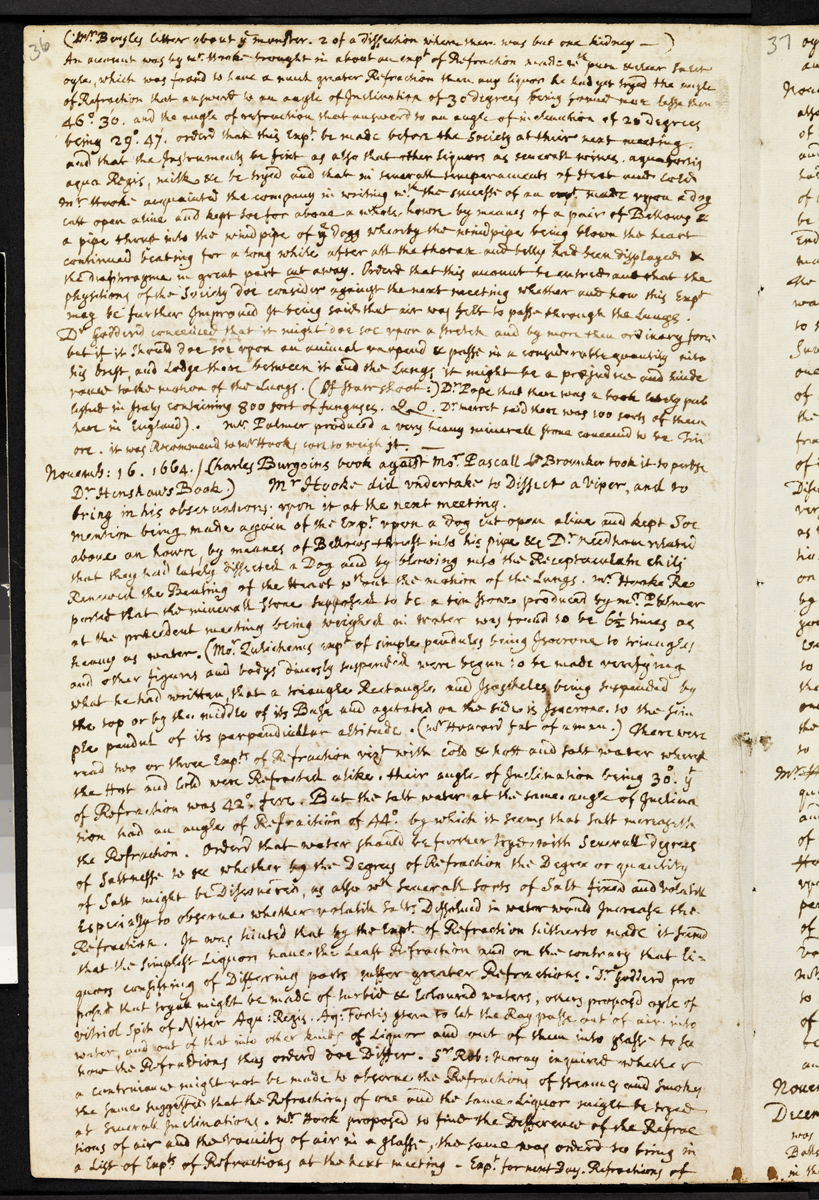 36
(Mr. Beagles letter about ye monster. 2 of a dissection where there was but one kidney — )
An account was by mr. Hooke brought in about an expt of Refraction made wth pure & clear Sallet
oyle, which was found to have a much greater Refraction then any liquor he had yet tryed the angle
of Refraction that answerd to an angle of Inclination of 30 degrees being found nere lesse then
46°. 30. and the angle of refraction that answerd to an angle of inclination of 20 degrees
being 29°. 47. orderd that this Expt. be made before the Society at their next meeting.
and that the Instruments be fixt as also that other Liquors as severall wines. aqua fortis
aqua Regis, milk &c be tryed and that in severall temperaments of Heat and Cold
Mr Hooke acquainted the company in writing wth the successe of an expt. made upon a dog
cutt open alive and kept soe for above a whole howre by meanes of a pair of Bellows &
a pipe thrust into the windpipe of ye Dogg wherby the windpipe being blown the heart
continued beating for a long while after all the thorax and belly had been displayed &
the diaphragme in great part cut away. Orderd that this account be entred and that the
physitians of the Society doe consider against the next meeting whether and how this Expt
may be further Improued It being said that air was felt to passe through the Lungs.
Dr Godderd conceiued that it might doe soe upon a stretch and by more then ordinary force
but if it should doe soe upon an animal unopend & passe in a considerable quantity into
his brest, and Lodge there between it and the Lungs it might be a prejudice and hinde
rance to the motion of the Lungs. (Of Starr shoot:) Dr. Pope that there was a book lately pub
lished in Italy containing 800 sort of funguses. Q. O. Dr merret said there was 100 sorts of them
here in England). Mr. Palmer produced a very heavy minerall stone conceiud to be Tin
ore. it was Recommend to mr Hooks care to weigh it —
Novemb: 16. 1664. / (Charles Burgoins book against Mor. Pascall Ld Brounker took it to peruse
Dr Henshaws Book) Mr Hooke did undertake to Dissect a viper, and to
bring in his observations upon it at the next meeting.
mention being made again of the Expt. upon a dog cut open alive and kept Soe
above an howre, by meanes of Bellows thrust into his pipe &c Dr. needham related
that they had lately dissected a Dog and by blowing into the Receptaculum chili
Renewed the Beating of the Heart wthout the motion of the Lungs. mr. Hooke Re
ported that the minerall stone supposed to be a tin stone produced by mr. Palmer
at the precedent meeting being weighed in water was found to be 6½ times as
heavy as water. (Mor. Zulichems expt of simple pendules being Isocrone to triangles
and other figures and bodys diversly suspended were begun to be made verifying
what he had written, that a triangle Rectangle and Isosceles being suspended by
the top or by the middle of its Base and agitated on the side is Isocrone. to the sim
ple pendul of its perpendicular altitude. (mr Howard fat of a man.) There were
read two or three Expts. of Refraction vizt with Cold & hott and salt water where
the Hot and Cold were Refracted alike. their angle of Inclination being 30°. ye
of Refraction was 42°. fere. But the salt water at the same angle of Inclina
tion had an angle of Refraction of 44°. by which it seems that salt increaseth
the Refraction. Orderd that water should be further tryed with Severall degrees
of Saltnesse to see whether by the Degrees of Refraction the Degree or quantity
of Salt might be Discouered, as also wth Severall sorts of Salt fixed and volatile
Especially to observe whether volatile Salts Dissolued in water would Increase the
Refraction. It was hinted that by the Expts. of Refraction hitherto made it seemd
that the simplest Liquors haue the Least Refraction and on the contrary that Li=
quors consisting of Differing parts suffer greater Refractions. Dr. Godderd pro
posed that tryall might be made of turbid & Coloured waters, others proposed oyle of
vitriol Spit of Niter Aqu: Regis. Aq: Fortis item to let the Ray passe out of air into
water, and out of that into other kinds of Liquor and out of them into glasse to see
how the Refractions thus orderd doe Differ. Sr. Rob: moray inquired whether
a contriuance might not be made to observe the Refractions of steames and smokes
the same suggested that the Refractions of one and the same Liquor might be tryed
at Severall Inclinations. mr. Hook proposed to find the Difference of the Refrac
tions of air and the vacuity of air in a glasse, the same was orderd to bring in
a List of Expts of Refractions at the next meeting — Expt. for next day. Refractions of
37